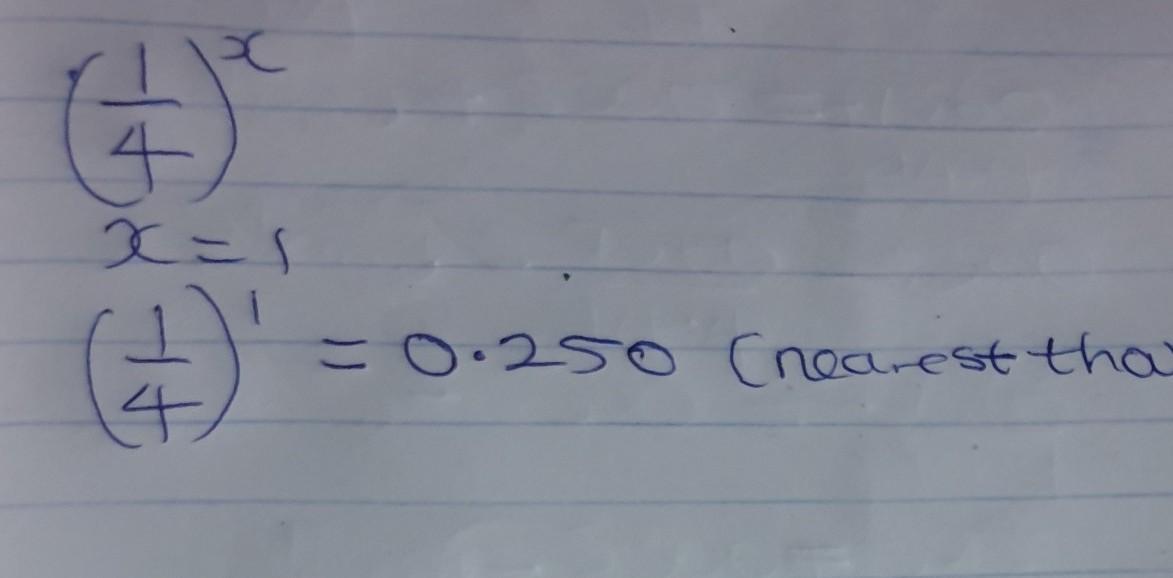 (1/4)^x
x = 1
(1/4)^1 = 0.250 (nearest tho